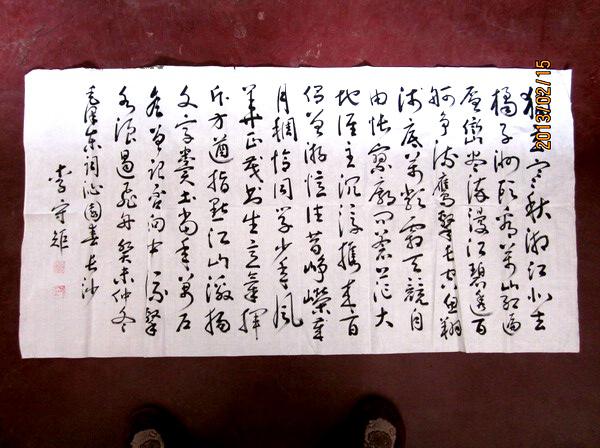 独立寒秋湘江北去
橘子洲头看万山红遍
层峦尽染漫江碧透百
舸争流鹰击长空鱼翔
浅底万类霜天竞自
由怅寥廓问苍茫大
地谁主沉浮携来百
侣曾游忆往昔峥嵘岁
月稠恰同学少年风
华正茂书生意气挥
斥方遒指点江山激扬
文字粪土当年万户
侯曾记否向中流击
水浪遏飞舟癸未仲冬
毛泽东词沁园春长沙
李守
2013/02/15